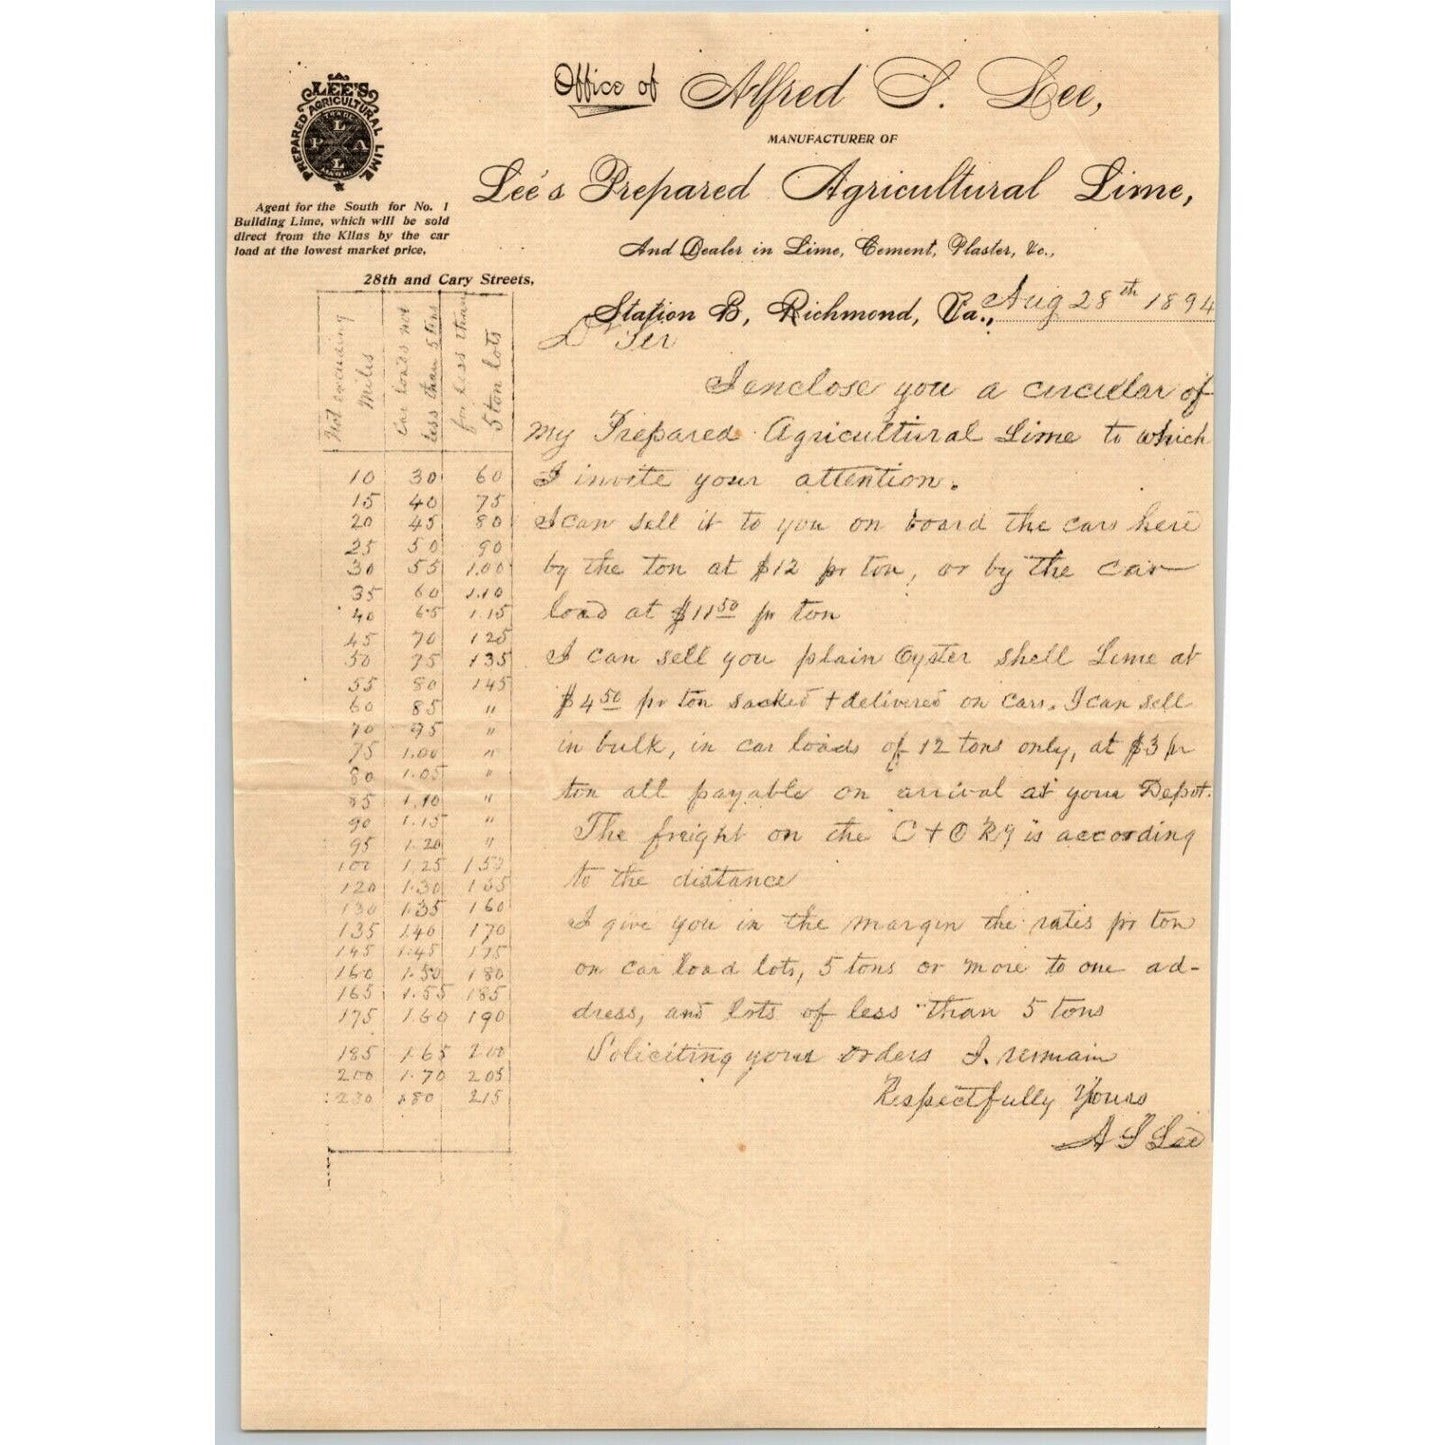 LEE'S
PREPARED AGRICULTURAL LIME
L
P A
L
Agent for the South for No. 1
Building Lime, which will be sold
direct from the Kilns by the car
load at the lowest market price.
Office of Alfred S. Lee,
MANUFACTURER OF
Lee's Prepared Agricultural Lime,
And Dealer in Lime, Cement, Plaster, &c.,
28th and Cary Streets,
Station B, Richmond, Va., Aug 28th 1894
Dr Sir
I enclose you a circular of
my Prepared Agricultural Lime to which
I invite your attention.
I can sell it to you on board the cars here
by the ton at $12 pr ton, or by the car
load at $11 50 pr ton
I can sell you plain Oyster shell Lime at
$4 50 pr ton sacked + delivered on cars. I can sell
in bulk, in car loads of 12 tons only, at $3 pr
ton all payable on arrival at your Depot.
The freight on the C + O Ry is according
to the distance
I give you in the margin the rates pr ton
on car load lots, 5 tons or more to one ad-
dress, and lots of less than 5 tons
Soliciting your orders I remain
Respectfully Yours
A S Lee
Not exceeding
Miles
Car loads not
less than 5 tons
for less than
5 ton lots
10 30 60
15 40 75
20 45 80
25 50 90
30 55 1.00
35 60 1.10
40 65 1.15
45 70 125
50 75 135
55 80 145
60 85 "
70 95 "
75 1.00 "
80 1.05 "
85 1.10 "
90 1.15 "
95 1.20 "
100 1.25 150
120 1.30 155
130 1.35 160
135 1.40 170
145 1.45 175
160 1.50 180
165 1.55 185
175 1.60 190
185 1.65 200
200 1.70 205
230 180 215